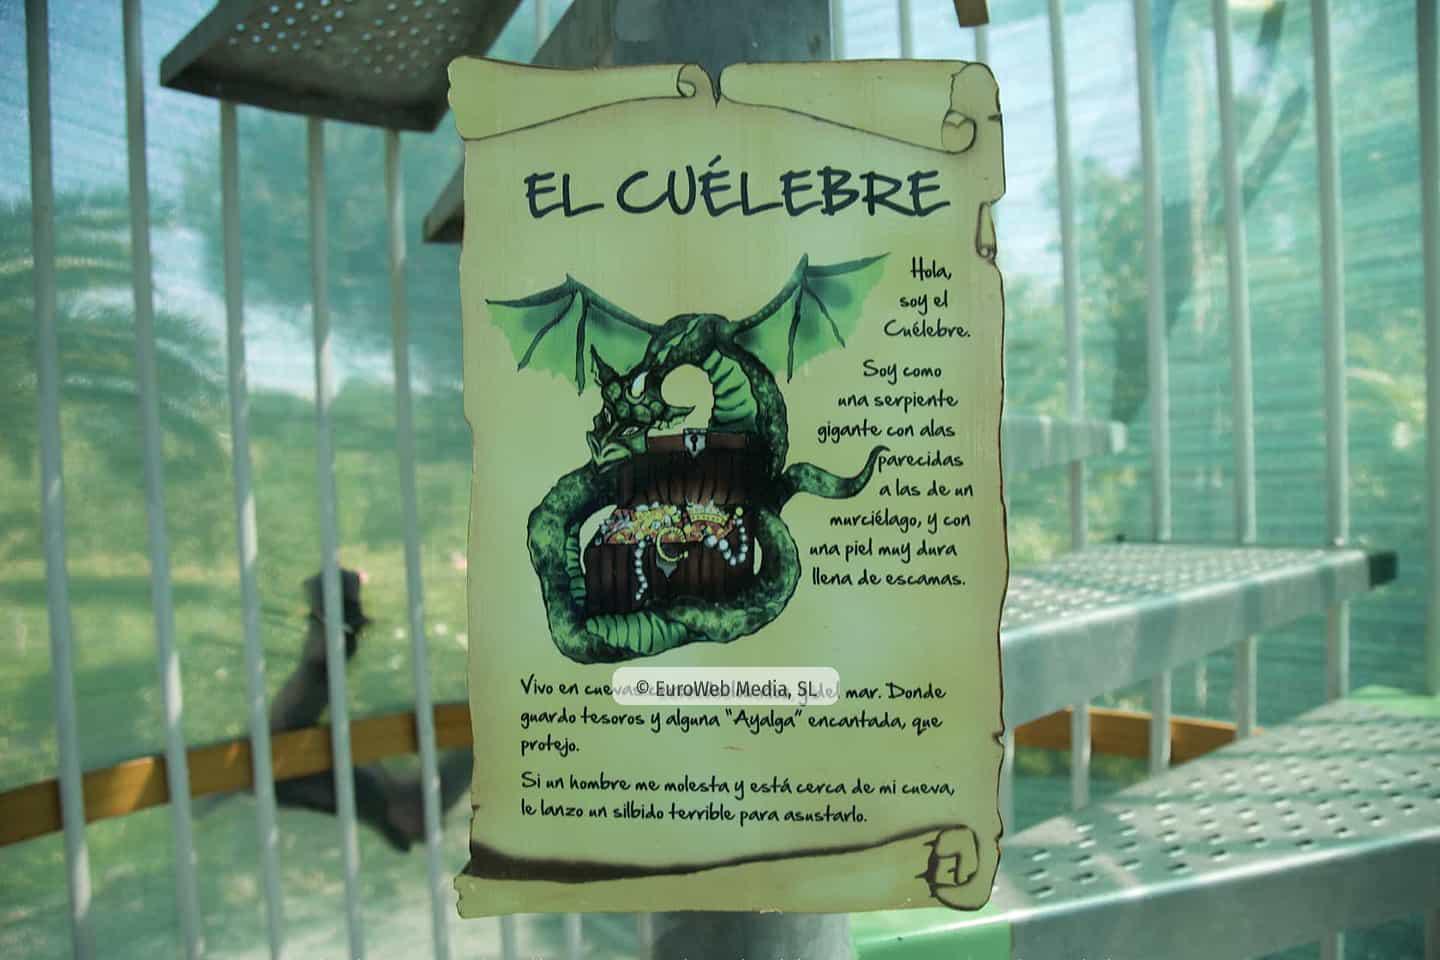 EL CUÉLEBRE
Hola,
soy el
Cuélebre.
Soy como
una serpiente
gigante con alas
parecidas
a las de un
murciélago, y con
una piel muy dura
llena de escamas.
Vivo en cuevas y del mar. Donde
© EuroWeb Media, SL
guardo tesoros y alguna "Ayalga" encantada, que
protejo.
Si un hombre me molesta y está cerca de mi cueva,
le lanzo un silbido terrible para asustarlo.